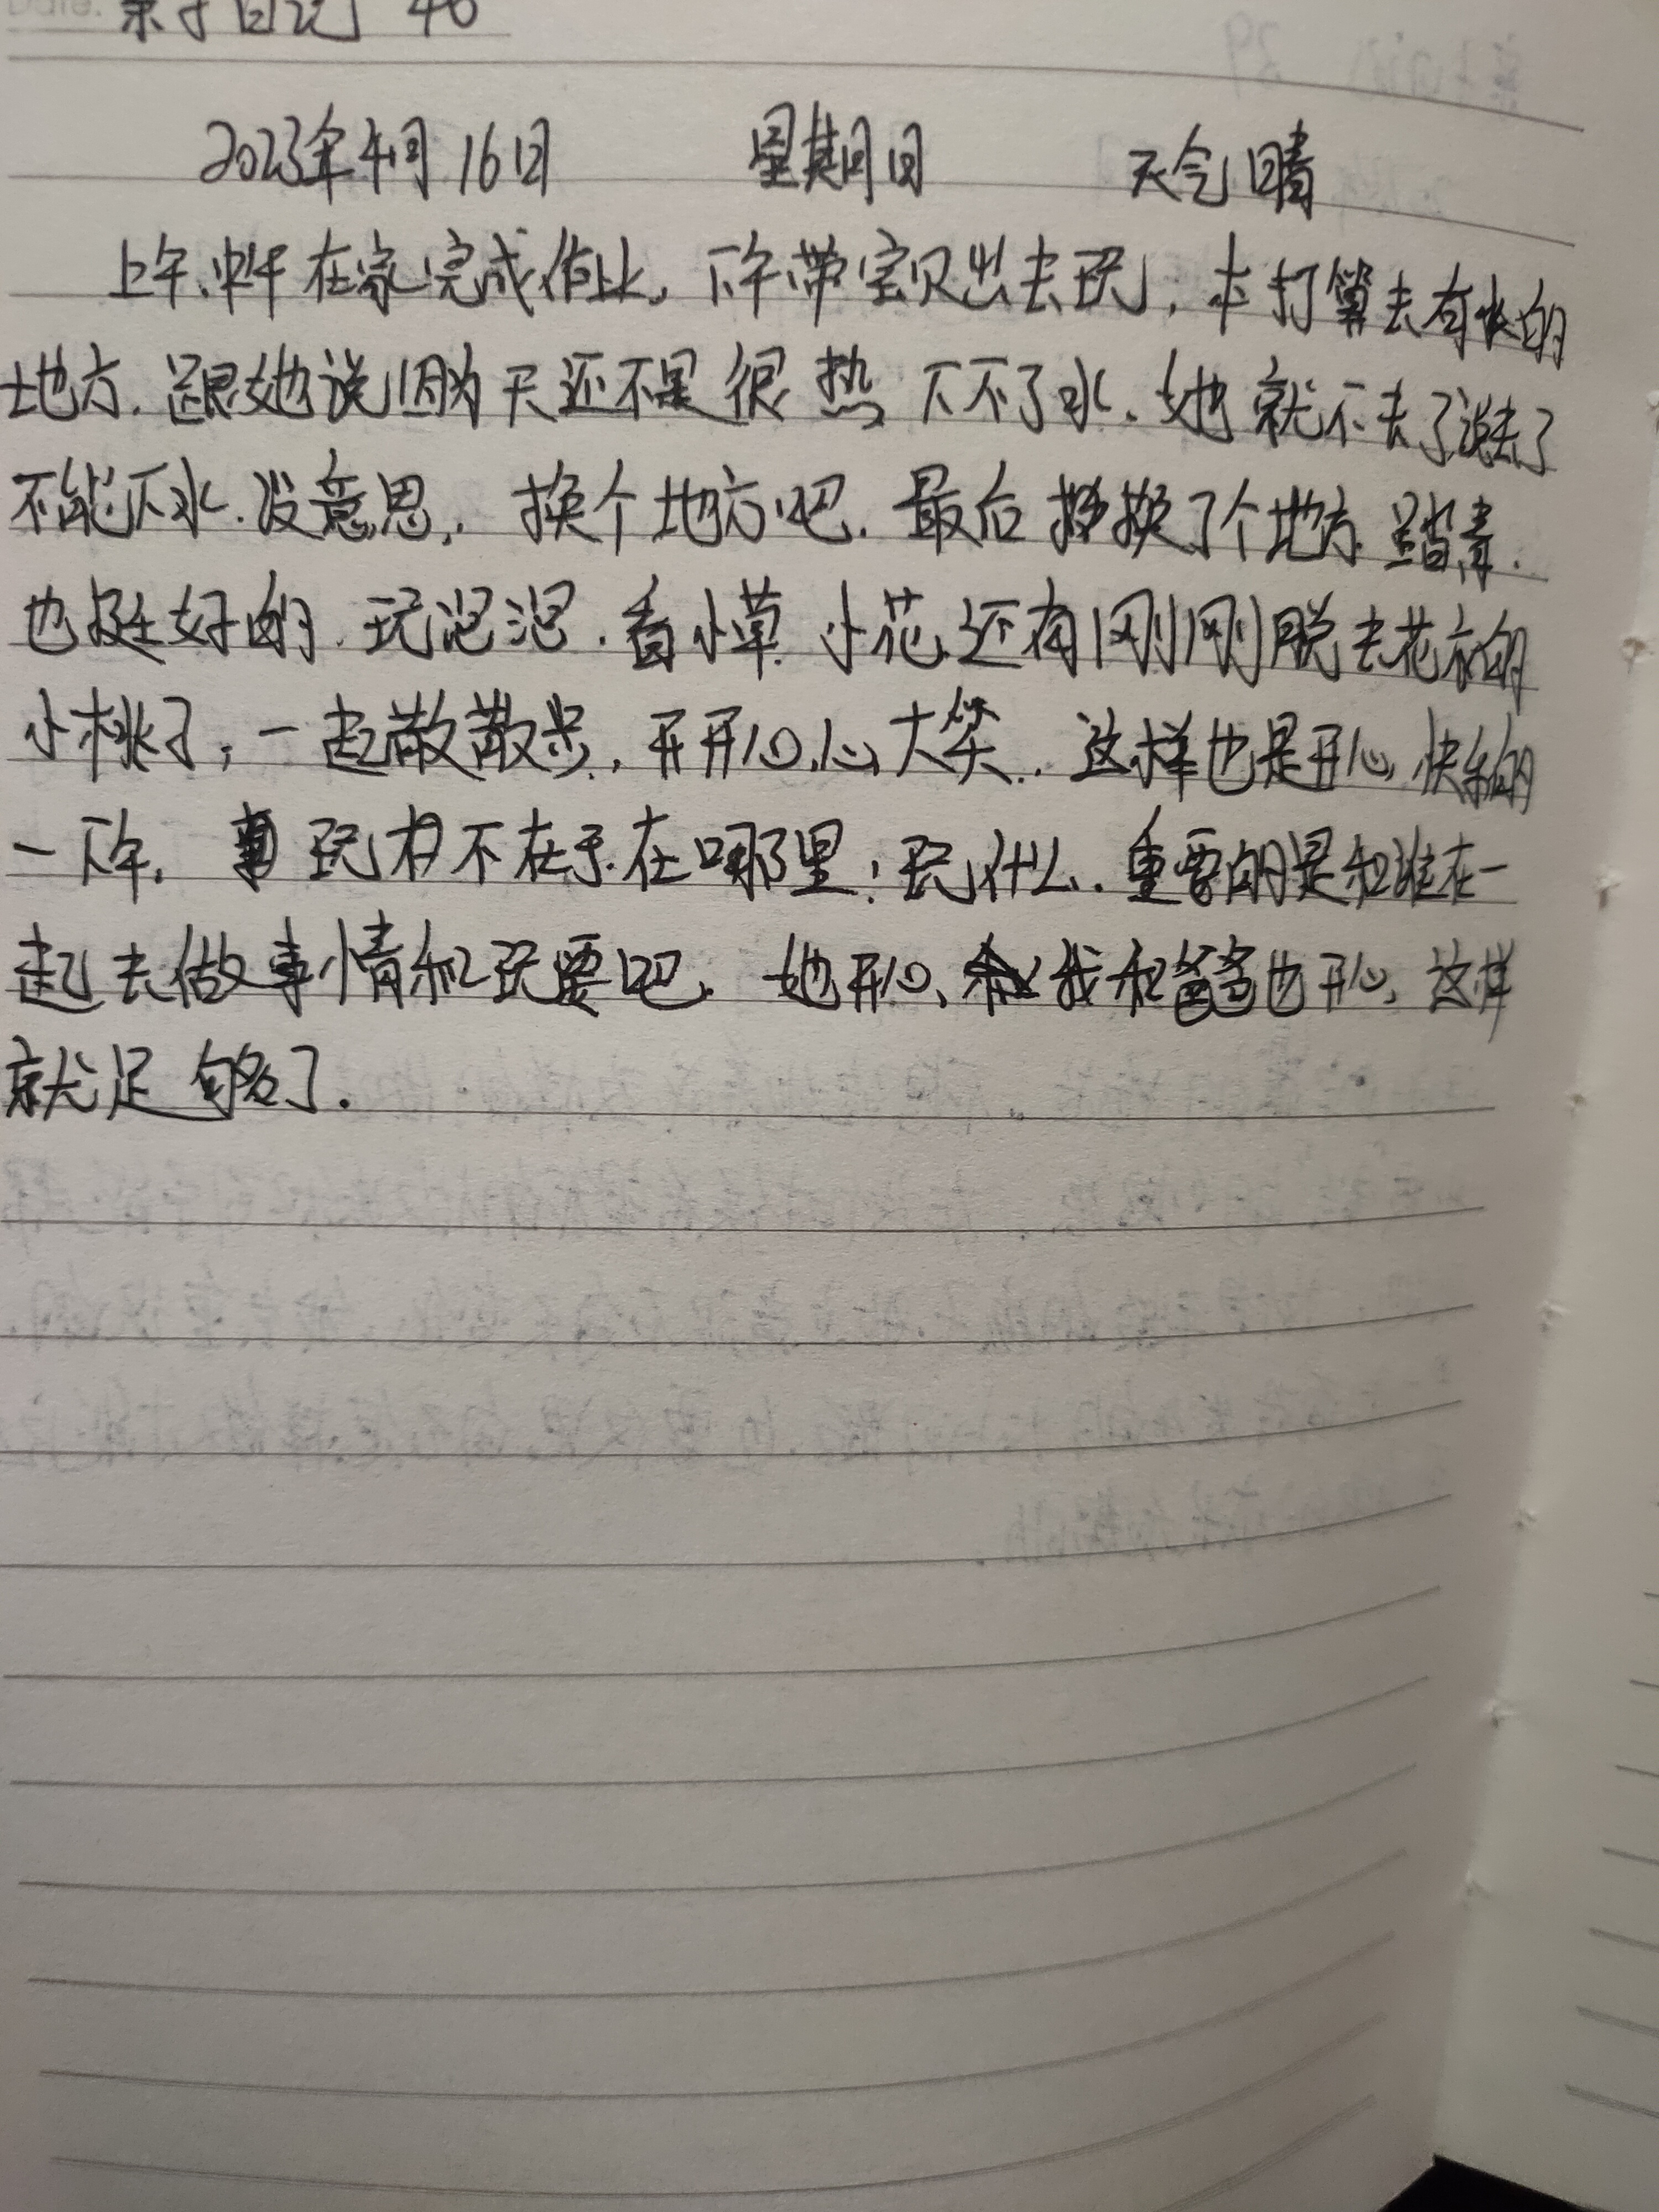 亲子日记 40
2023年4月16日 星期日 天气晴
上午、中午在家完成作业,下午带宝贝出去玩,本打算去有水的
地方,跟她说因为天还不是很热下不了水,她就不去了,说去了
不能下水,没意思,换个地方吧,最后换了个地方踏青.
也挺好的,玩泡泡,看小草、小花,还有刚刚脱去花衣的
小桃子,一起散散步,开开心心大笑,这样也是开心快乐的
一下午, 玩不在于在哪里,玩什么,重要的是和谁在一
起去做事情和玩耍吧,她开心、我和爸爸也开心,这样
就足够了.